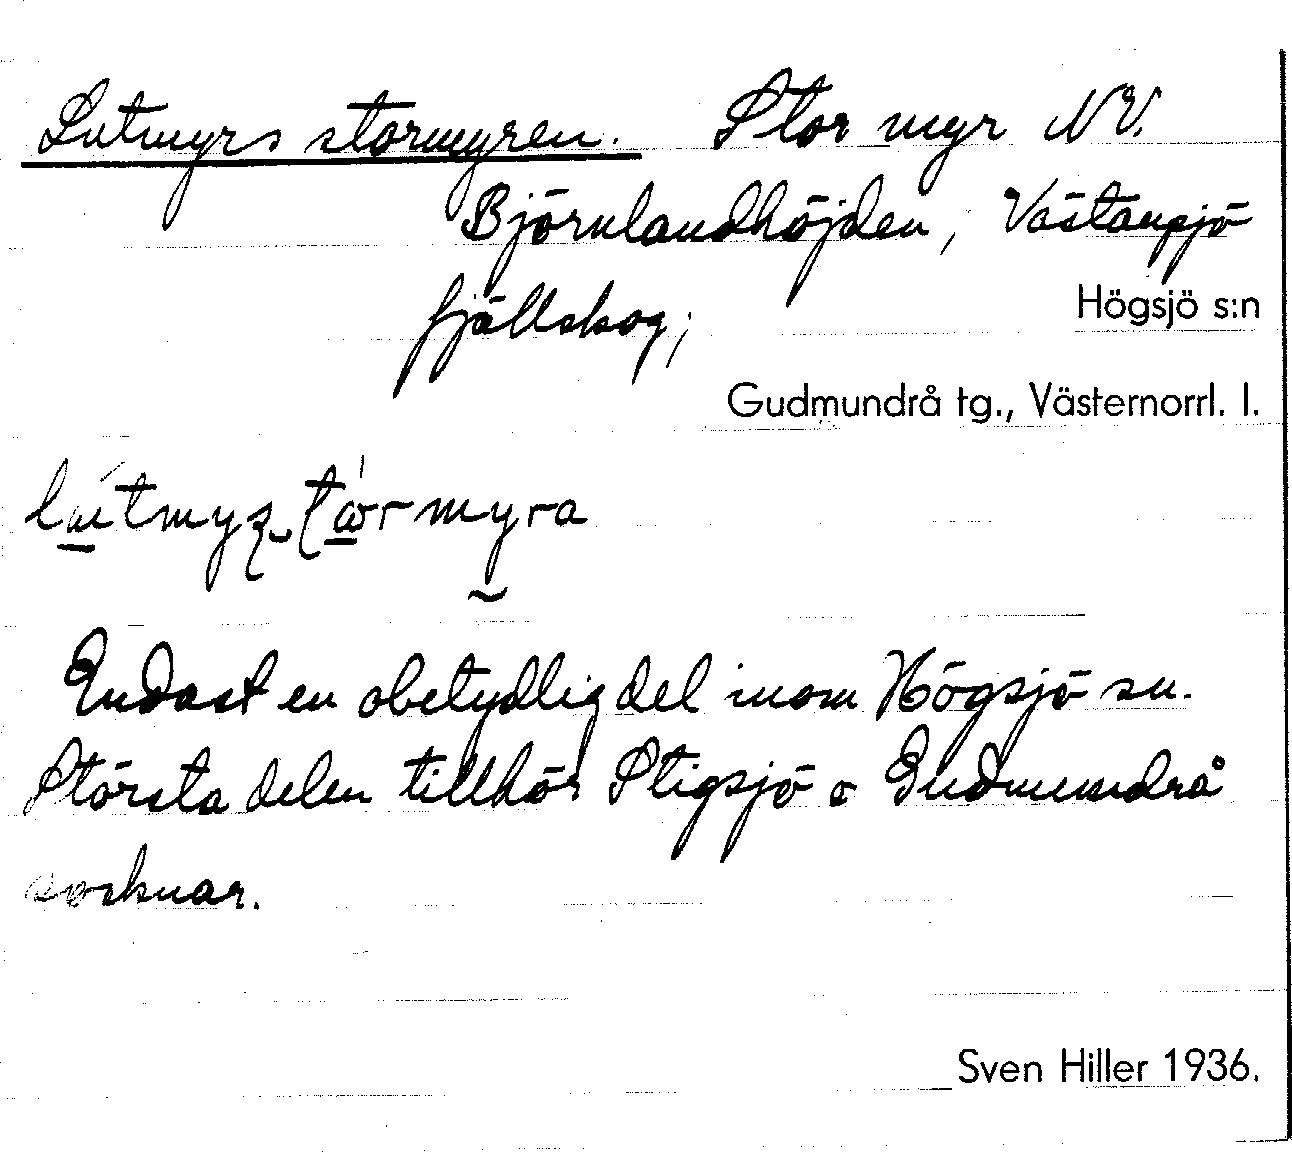 Lutmyrs stormyren. Stor myr NV.
Björnlandhöjden, Västansjö
fjällskog;
Högsjö s:n
Gudmundrå tg., Västernorrl. l.
Endast en obetydlig del inom Högsjö sn.
Största delen tillhör Stigsjö o Gudmundrå
socknar.
Sven Hiller 1936.